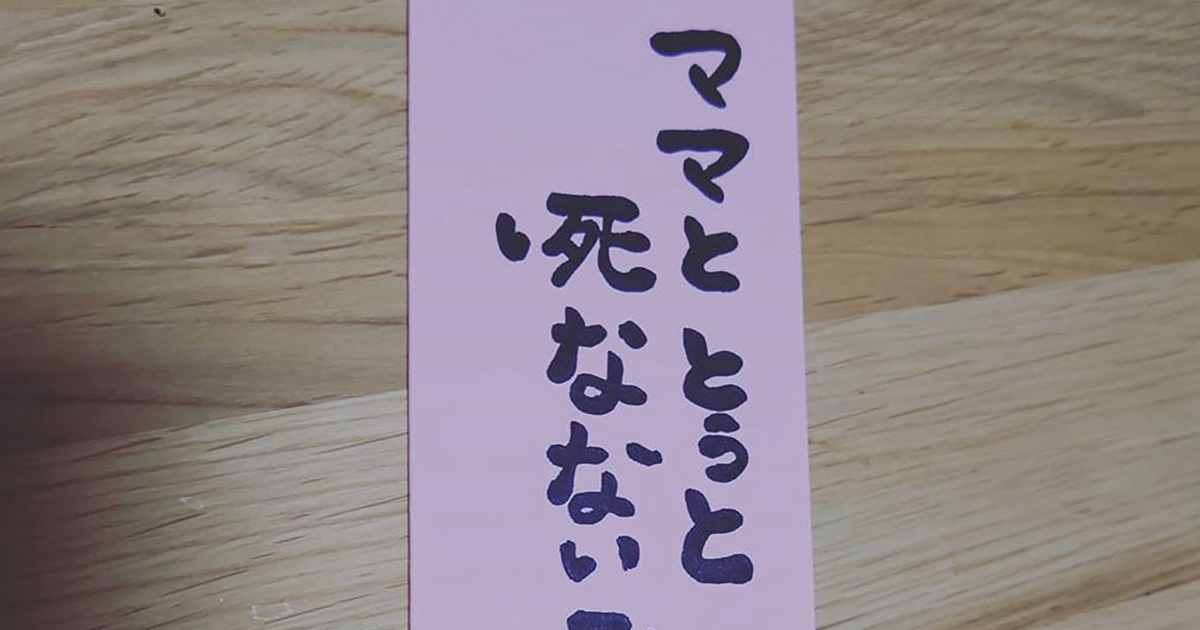 ママと とうと
死なない
い